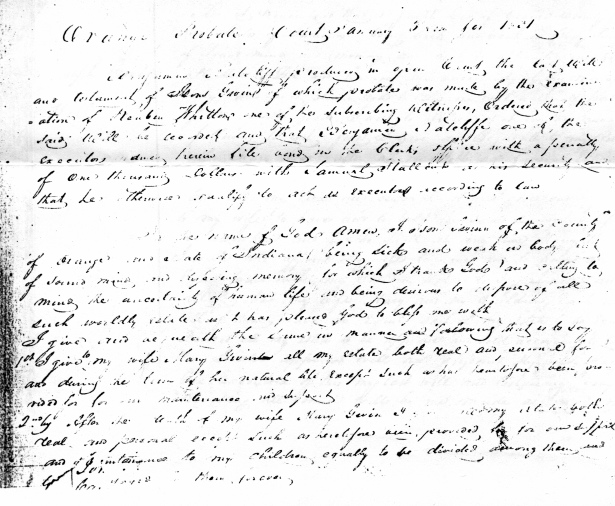 Orange Probate Court January Term for 1831
Benjamin Ratcliff produced in open Court the last Will
and testament of Givins of which probate was made by the examin
ation of Reuben Whitlow one of her subscribing Witnesses, Ordered that the
said Will be recorded and that Benjamin Ratcliffe one of the
executors having herein filed bond in the Clerks office with a penalty
of One thousand Dollars with Samuel as his Security and
that he otherwise qualify to act as Executor according to law
In the name of God Amen, I Givins of the County
of Orange and State of Indiana being sick and weak in body but
of sound mind, and memory for which I thank God and calling to
mind, the uncertainty of human life and being desirous to dispose of all
such worldly estate as it has pleased God to bless me with
I give and bequeath the same in manner and following that is to say
1st I give to my wife Mary Givins all my estate both real and personal for
and during the term of her natural life except such as has heretofore been pro
vided for for our maintenance and support
2ndly After the death of my wife Mary Givin I my estate both
real and personal except such as heretofore been provided, for our support
and maintenance to my children equally to be divided among them, and
to them forever